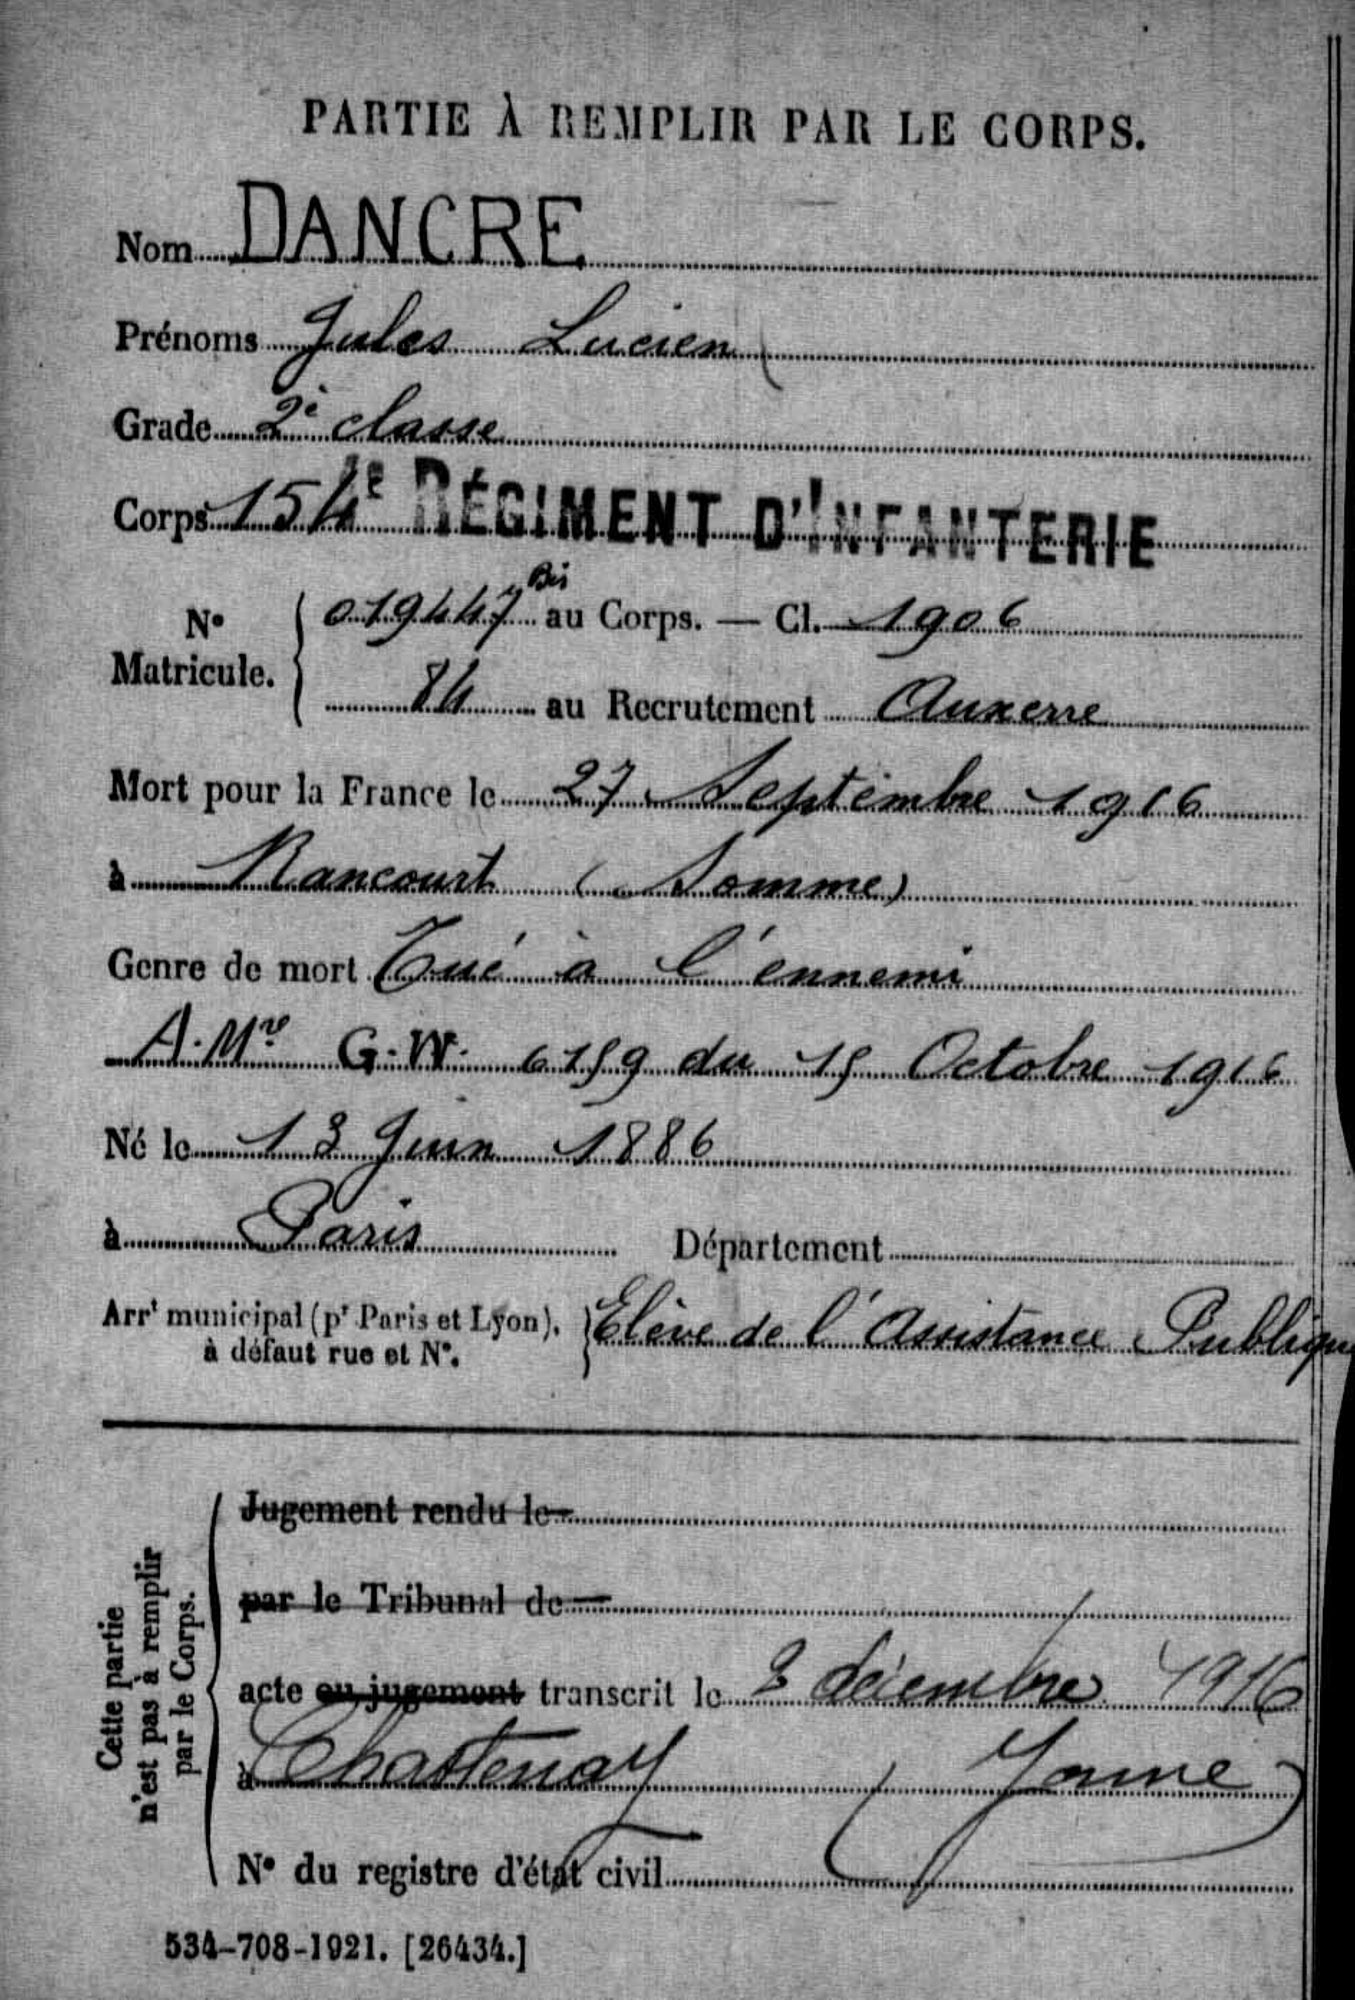 PARTIE À REMPLIR PAR LE CORPS.
Nom DANCRE
Prénoms Jules Lucien
Grade 2e classe
Corps 154e RÉGIMENT D'INFANTERIE
N° Matricule. { 019447 Bis au Corps. — Cl. 1906
84 au Recrutement Auxerre
Mort pour la France le 27 Septembre 1916
à Rancourt (Somme)
Genre de mort Tué à l'ennemi
A. Mre G.W. 6159 du 15 Octobre 1916
Né le 13 Juin 1886
à Paris Département
Arrt municipal (pr Paris et Lyon), à défaut rue et N°. } Elève de l'Assistance Publique
Cette partie n'est pas à remplir par le Corps.
Jugement rendu le
par le Tribunal de
acte ou jugement transcrit le 2 décembre 1916
à Chastenay (Yonne)
N° du registre d'état civil
534-708-1921. [26434.]